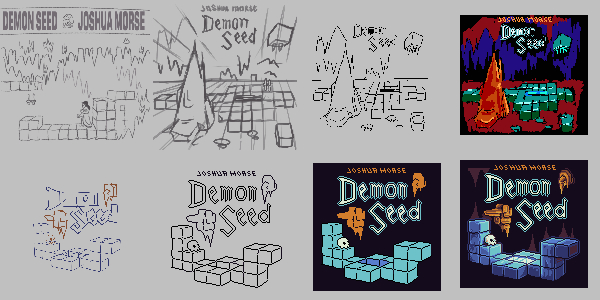 DEMON SEED JOSHUA MORSE
JOSHUA MORSE
Demon
Seed
Demon
Seed
JOSHUA MORSE
Demon
Seed
Seed
JOSHUA MORSE
Demon
Seed
JOSHUA MORSE
Demon
Seed
JOSHUA MORSE
Demon
Seed